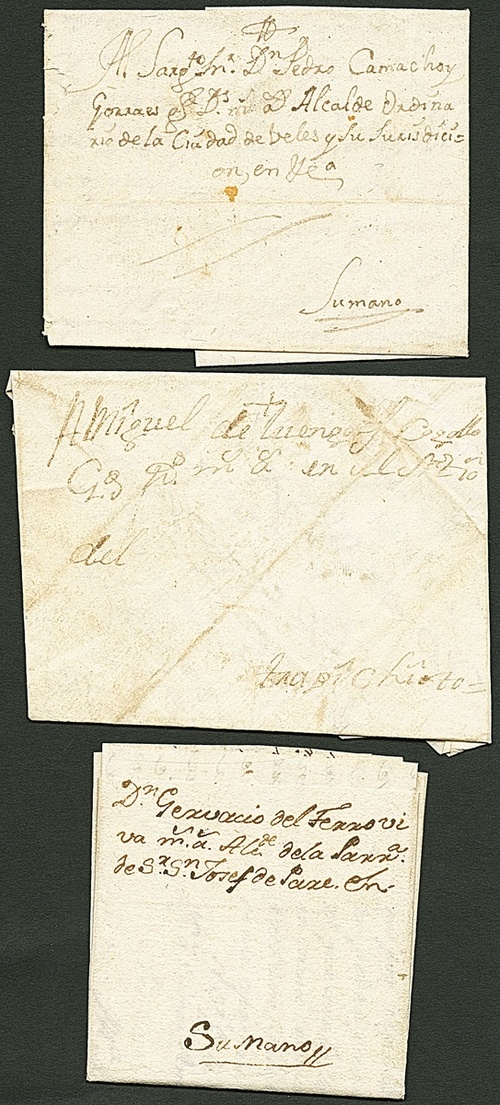 Al Sargto. Mr. Dn Pedro Camacho y
q Ds. m. a. Alcalde Ordina
rio de la Ciudad de Veles y su Jurisdici=
on, en
Sumano
A Miguel de Luengas y
Gd ms. as. en el
del
trapichito=
Dn. Gervacio del Ferro vi
va ms. as. Alde. de la Parra.
de Sr. Sn. Josef de Pare. En
Sumano